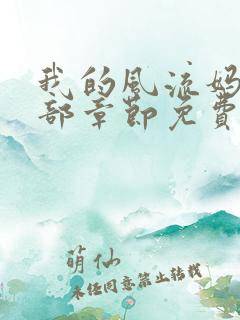 我的风流妈
部章节免费
萌仙
未经同意禁止转载